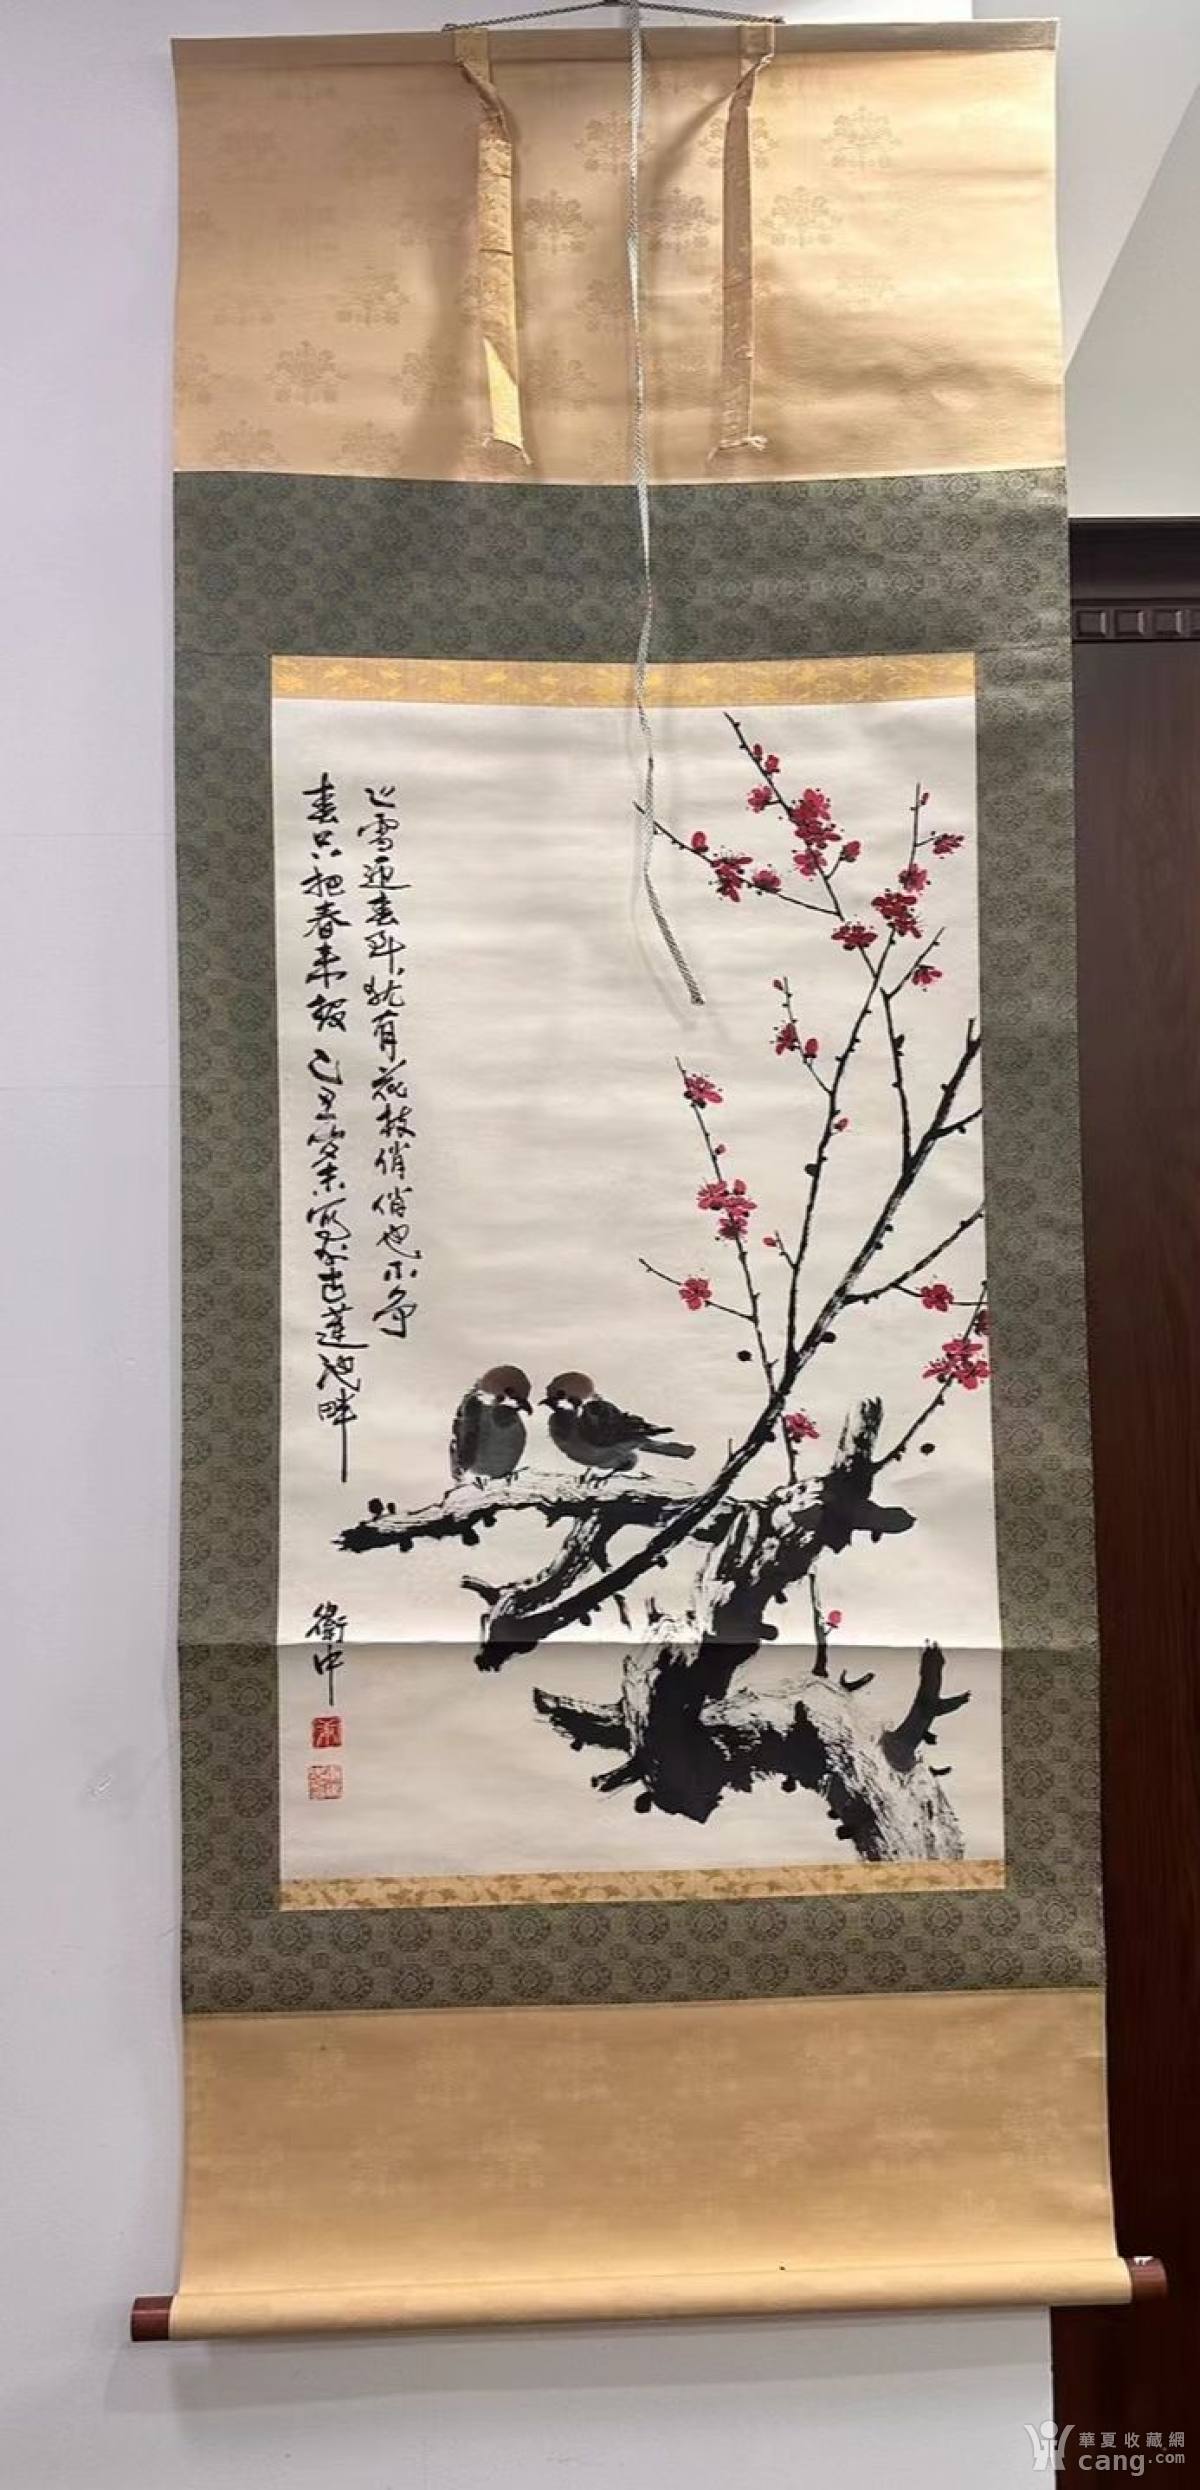 飞雪迎春到犹有花枝俏俏也不争
春只把春来报 己丑岁末写于古莲池畔
衛中
華夏收藏網
cang.com